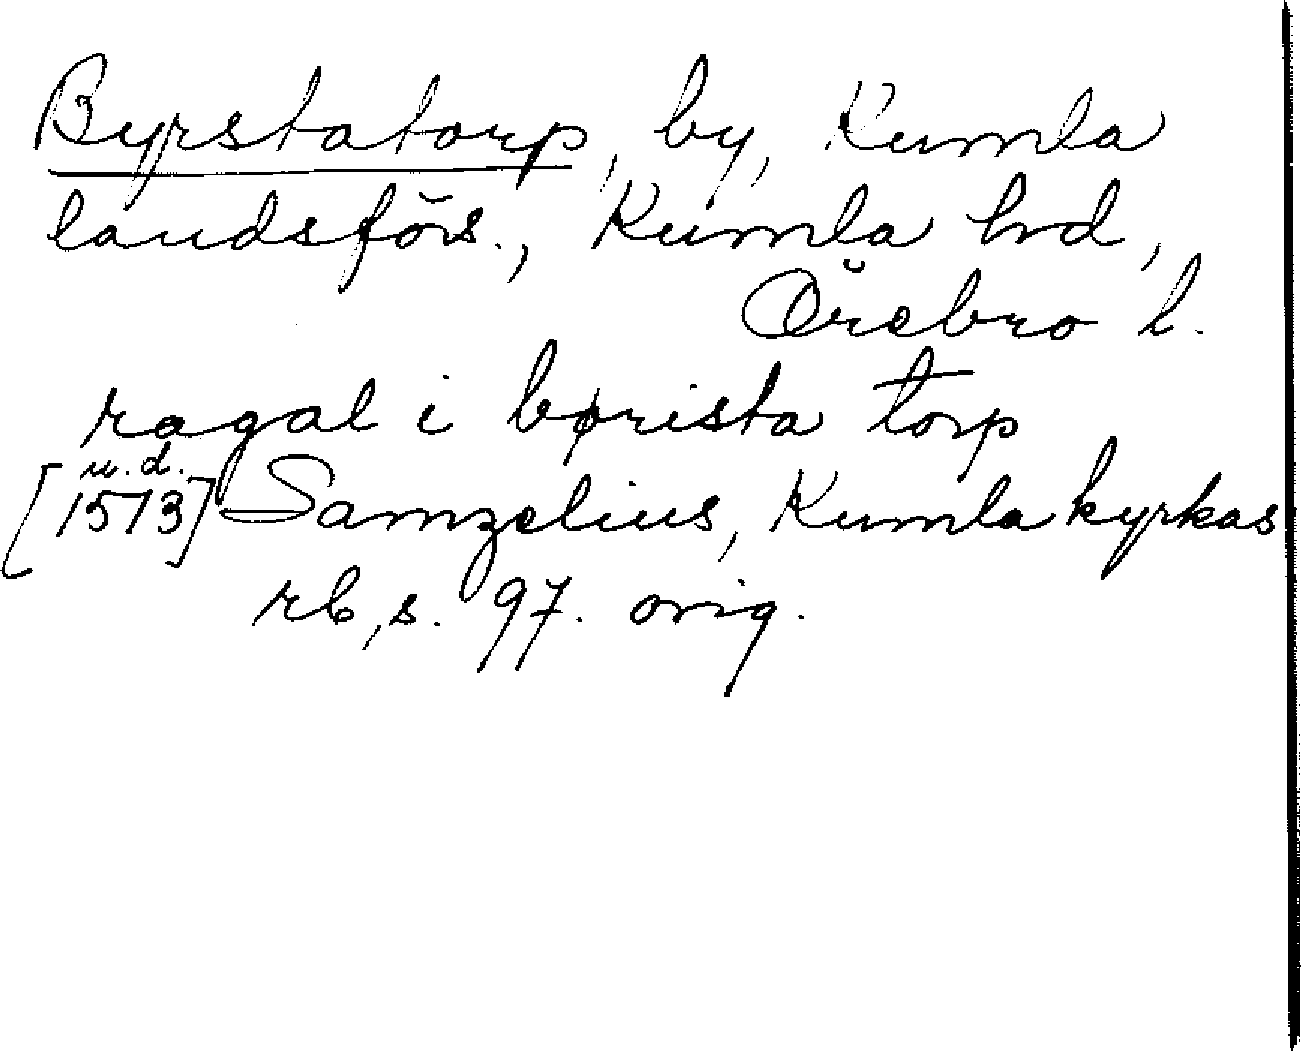 Byrstatorp, by, Kumla
landsförs., Kumla hd,
Örebro l.
ragal i børista torp
u.d.
[1573] Samzelius, Kumla kyrkas
rb, s. 97. orig.